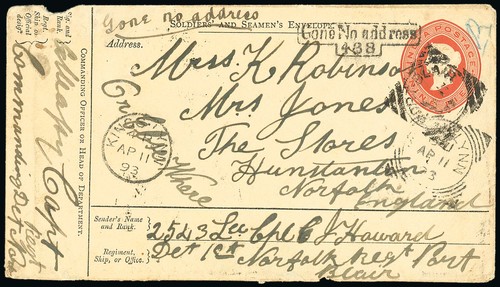 Gone no address
SOLDIERS' AND SEAMEN'S ENVELOPE.
Gone No address
488
INDIA POSTAGE
Address.
Miss K Robinson
C/o
Mrs Jones
The Stores
Hunstanton
Norfolk
England
Where
AP 11
93
LYNN
AP 11
93
Sender's Name and Rank.
2543 Lce Cpl C J Howard
Regiment, Ship, or Office.
Det 1st Norfolk Regt Port
Blair
COMMANDING OFFICER OR HEAD OF DEPARTMENT.
Sig. and Rank.
Capt
Regt., Ship, or Official desig.
Commanding Det Norfolk
Regt